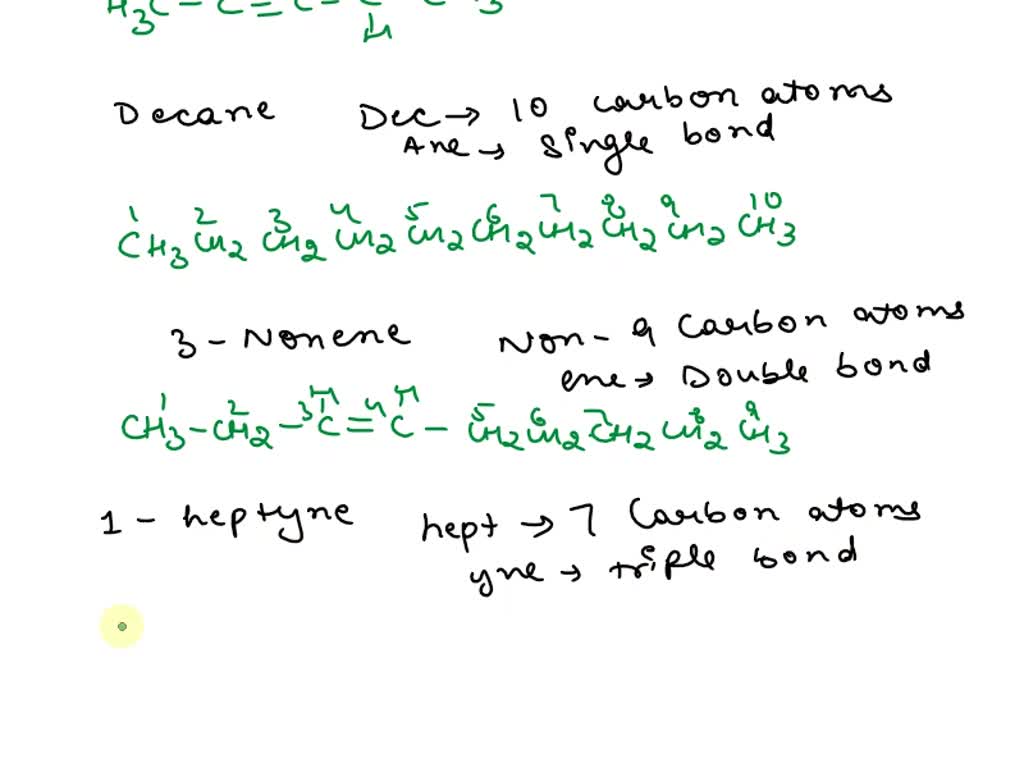 H3C - C = C - C CH3
H
Decane Dec → 10 carbon atoms
Ane → single bond
1 2 3 4 5 6 7 8 9 10
CH3 CH2 CH2 CH2 CH2 CH2 CH2 CH2 CH2 CH3
3 - Nonene Non - 9 Carbon atoms
ene → Double bond
1 2 3 H 4 H 5 6 7 8 9
CH3 - CH2 - C = C - CH2 CH2 CH2 CH2 CH3
1 - heptyne hept → 7 Carbon atoms
yne → triple bond